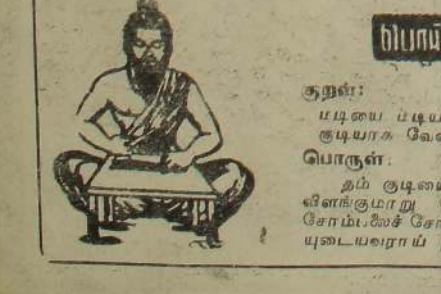 பொய்
குறள்:
மடியை மடியா
குடியாக வேண்
பொருள்:
தம் குடியை
விளங்குமாறு
சோம்பலைச் சோ
யுடையவராய்